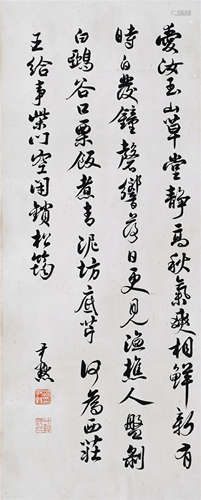 愛汝玉山草堂靜高秋氣爽相鮮新有
時自發鐘磬響落日更見漁樵人盤剝
白鵶谷口栗飯煮青泥坊底芹何為西莊
王給事柴門空閉鎖松筠
尹默